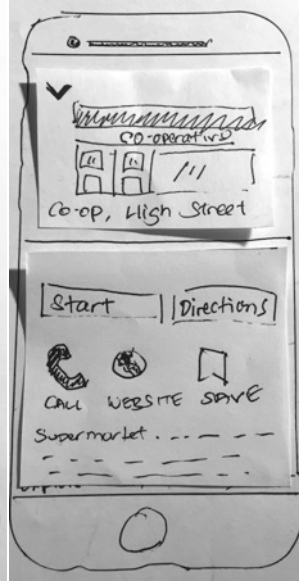 CO-operative
Co-op, High Street
Start Directions
CALL WEBSITE SAVE
Supermarket